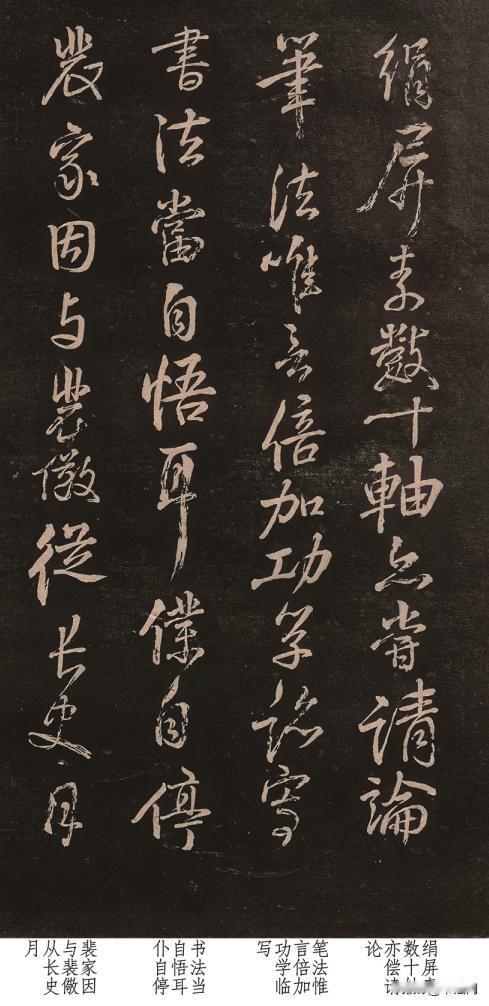 絹屏素數十軸亦嘗請論
筆法唯言倍加功學臨寫
書法當自悟耳僕自停
裴家因与裴儆從长史月
绢屏
数十
亦偿请
论
笔法惟
言倍加
功学临
写
书法当
自悟耳
仆自停
裴家因
与裴徽
从长史
月